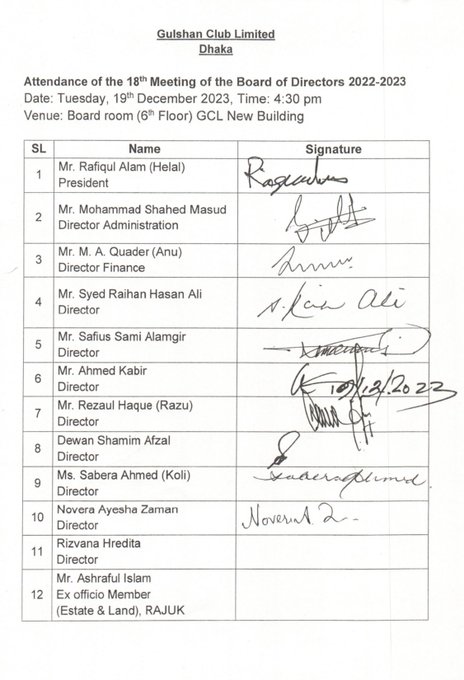 Gulshan Club Limited
Dhaka
Attendance of the 18th Meeting of the Board of Directors 2022-2023
Date: Tuesday, 19th December 2023, Time: 4:30 pm
Venue: Board room (6th Floor) GCL New Building
SL Name Signature
1 Mr. Rafiqul Alam (Helal)
President
2 Mr. Mohammad Shahed Masud
Director Administration
3 Mr. M. A. Quader (Anu)
Director Finance
4 Mr. Syed Raihan Hasan Ali Ali
Director
5 Mr. Safius Sami Alamgir
Director
6 Mr. Ahmed Kabir 19/12/2023
Director
7 Mr. Rezaul Haque (Razu)
Director
8 Dewan Shamim Afzal
Director
9 Ms. Sabera Ahmed (Koli) Sabera Ahmed
Director
10 Novera Ayesha Zaman Novera
Director
11 Rizvana Hredita
Director
12 Mr. Ashraful Islam
Ex officio Member
(Estate & Land), RAJUK